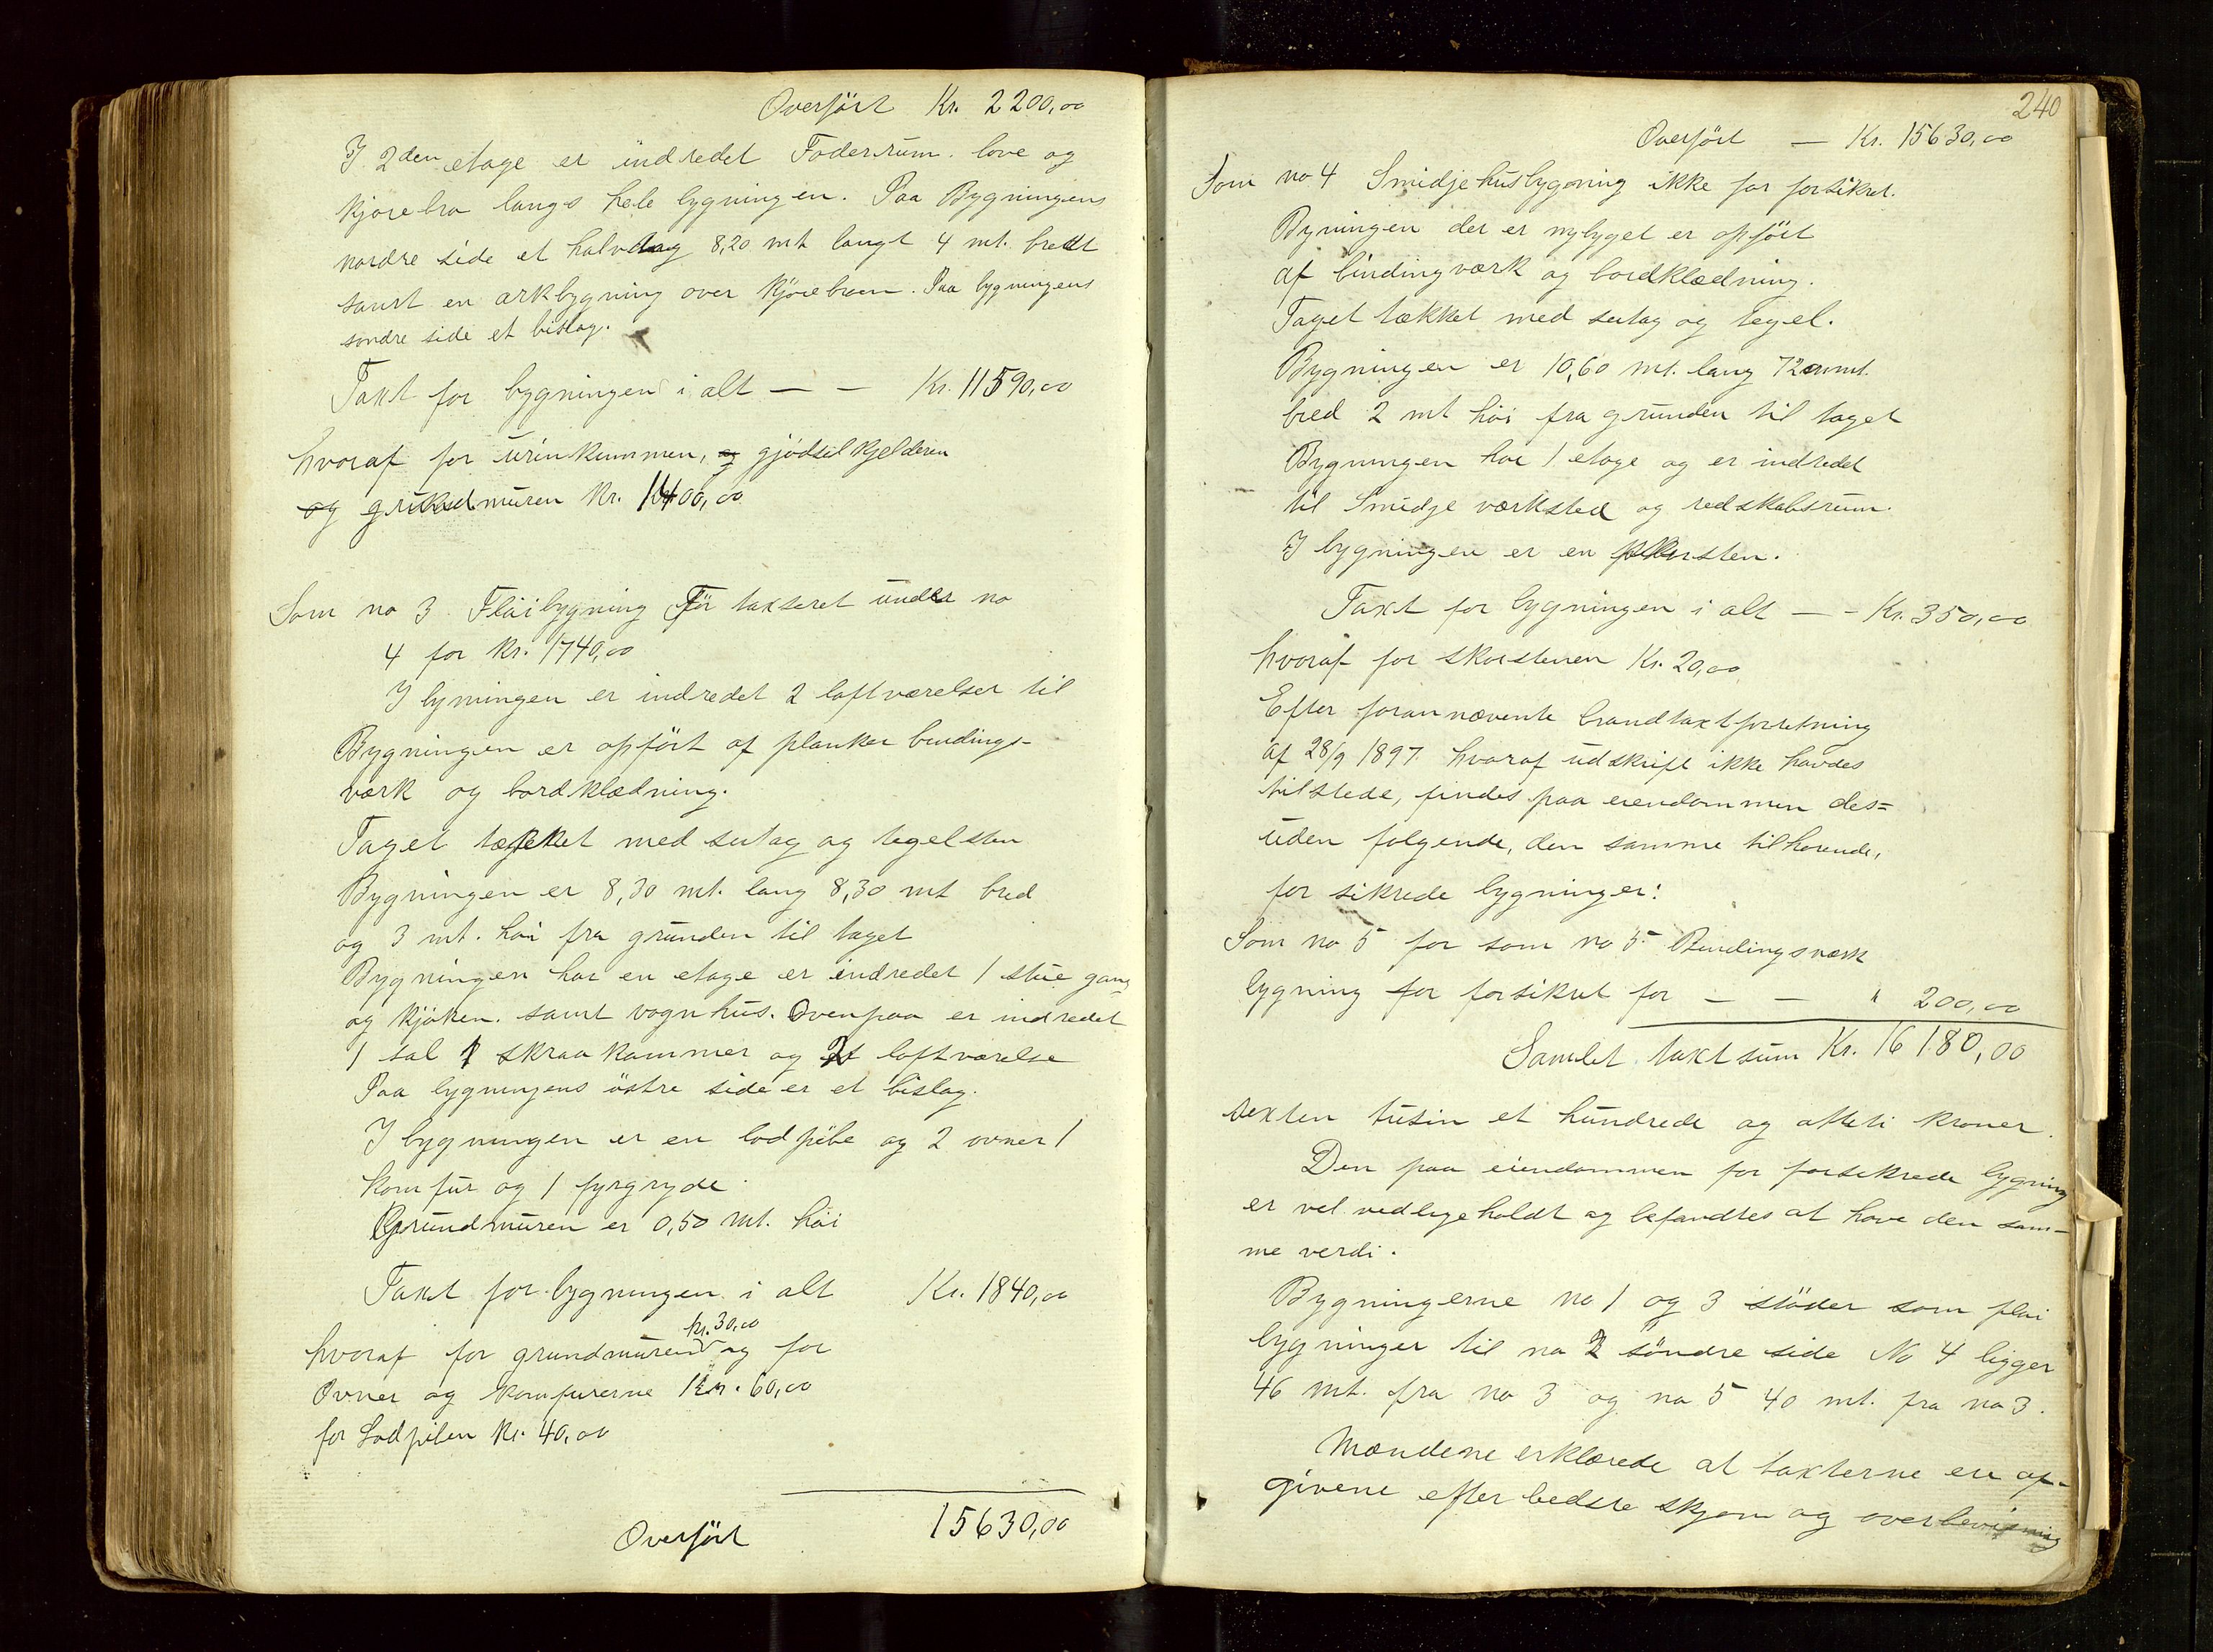 Overført Kr. 2200,00
I 2den etage er indredet Foderrum. love og
kjørebro langs hele bygningen. Paa Bygningens
nordre side et halvtag 8,20 mt langt 4 mt. bredt
samt en arkbygning over kjørebroen. Paa bygningens
søndre side et bislag.
Taxt for bygningen i alt — — Kr. 11590,00
hvoraf for urinkummen, og gjødselkjelderen
og grundmuren Kr. 1400,00
Som no 3 Fløibygning før takseret under no
4 for Kr. 1740,00
I bymingen er indredet 2 loftværelser til
Bygningen er opført af planker bindings-
værk og bordklædning.
Taget tækket med sutag og tegelsten
Bygningen er 8,30 mt. lang 8,30 mt bred
og 3 mt. høi fra grunden til taget
Bygningen har en etage er indredet 1 stue gang
og kjøken. samt vognhus. Ovenpaa er indredet
1 sal 1 skraakammer og 2 loftværelse
Paa bygningens østre side er et bislag.
I bygningen er en lodpibe og 2 ovner 1
komfur og 1 fyrgryde.
Grundmuren er 0,50 mt. høi
Taxt for bygningen i alt Kr. 1840,00
kr. 30,00
hvoraf for grundmuren og for
Ovner og komfurerne Kr. 60,00
for Lodpiben Kr. 40,00
15630,00
Overført
240
Overført — Kr. 15630,00
Som no 4 Smidjehusbygning ikke før forsikret.
Bymingen der er nybyget er opført
af bindingværk og bordklædning.
Taget tækket med sutag og tegel.
Bygningen er 10,60 mt. lang 720 mt.
bred 2 mt høi fra grunden til taget
Bygningen har 1 etage og er indredet
til Smidje værksted og redskabsrum.
I bygningen er en skorsten.
Taxt for bygningen i alt — - Kr. 350,00
hvoraf for skorstenen Kr. 20,00
Efter forannævente brandtaxtforretning
af 28/9 1897. hvoraf udskrift ikke havdes
tilstede, findes paa eiendommen des=
uden følgende, den samme tilhørende,
før sikrede bygninger:
Som no 5 før som no 5 Bindingsværk
bygning før forsikret for — — " 200,00
Samlet taxtsum Kr. 16180,00
sexten tusin et hundrede og otteti kroner.
Den paa eiendommen før forsikrede bygning
er vel vedligeholdt og befandtes at have den sam-
me verdi.
Bygningerne no 1 og 3 støder som fløi
bygninger til no 2 søndre side No 4 ligger
46 mt. fra no 3 og no 5 40 mt. fra no 3.
Mændene erklærede at taxterne ere af-
givene efter bedste skjøn og overbevisning